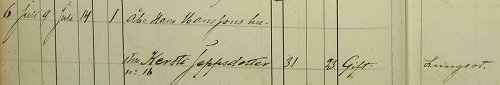 6 Juli 9 Juli 14 1 Åbo Hans Hanssons hu-
strun Kersti Jeppsdotter 31 23 Gift Lungsot.
nr: 16